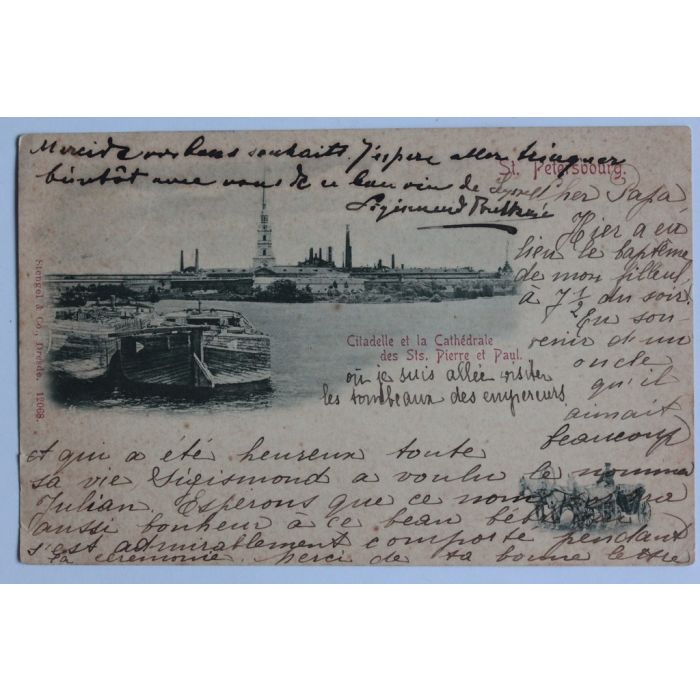 Merci de vos bons souhaits. J'espère aller trinquer
bientôt avec vous de ce bon vin de
Sigismond
St. Petersbourg.
Cher Papa
Hier a eu
lieu le baptême
de mon filleul
à 7 1/2 du soir
En sou-
venir d'un
oncle
qu'il
aimait
beaucoup
et qui a été heureux toute
sa vie Sigismond a voulu le nommer
Julian. Esperons que ce nom
aussi bonheur à ce beau bébé
s'est admirablement comporté pendant
la cérémonie. Merci de ta bonne lettre
Citadelle et la Cathédrale
des Sts. Pierre et Paul.
où je suis allée visiter
les tombeaux des empereurs
Stengel & Co., Dresde. 12068.